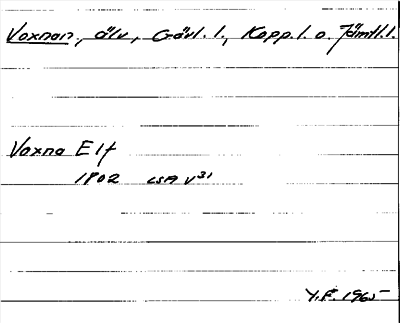 Voxnan, älv, Gävl. l., Kopp. l. o. Jämtl. l.
Voxna Elf
1802 LSA V31
Y.F. 1965